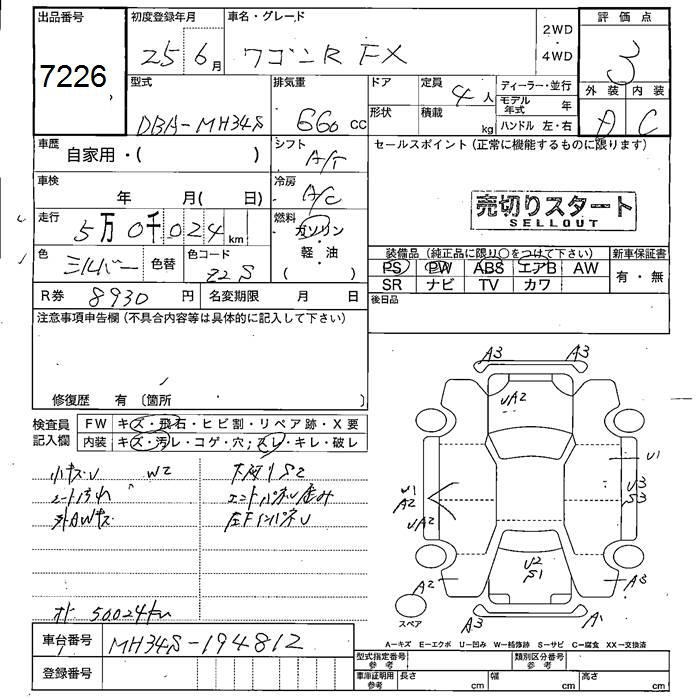 出品番号
7226
初度登録年月
25 6月
車名・グレード
ワゴンR FX
2WD
・
4WD
評価点
3
外装 内装
A C
型式
DBA-MH34S
排気量
660 cc
ドア
形状
定員
4人
積載
kg
ディーラー・並行
モデル年式 年
ハンドル 左・右
車歴
自家用・( )
シフト
A/T
セールスポイント (正常に機能するものに限ります)
車検
年 月( 日)
冷房
A/C
売切りスタート
SELLOUT
走行
5万0千024km
燃料
ガソリン
・
軽油
( )
色
シルバー
色替
色コード
Z2S
装備品 (純正品に限り○をつけて下さい)
新車保証書
PS PW ABS エアB AW
SR ナビ TV カワ
有・無
R券 8930 円
名変期限 月 日
後日品
注意事項申告欄 (不具合内容等は具体的に記入して下さい)
修復歴 有 〔箇所 〕
検査員記入欄
FW キズ・飛石・ヒビ割・リペア跡・X要
内装 キズ・汚レ・コゲ・穴・スレ・キレ・破レ
小キズU W2
シート汚れ
外AWキズ
オド 50024km
A3 A3
UA2
U1
U3
S3
U1
A2
UA2
A2
U2
S1
A3
A3
A1
スペア
A－キズ E－エクボ U－凹み W－補修跡 S－サビ C－腐食 XX－交換済
車台番号 MH34S-194812
登録番号
型式指定番号
参考
類別区分番号
参考
車庫証明用
参考
長さ cm
幅 cm
高さ cm